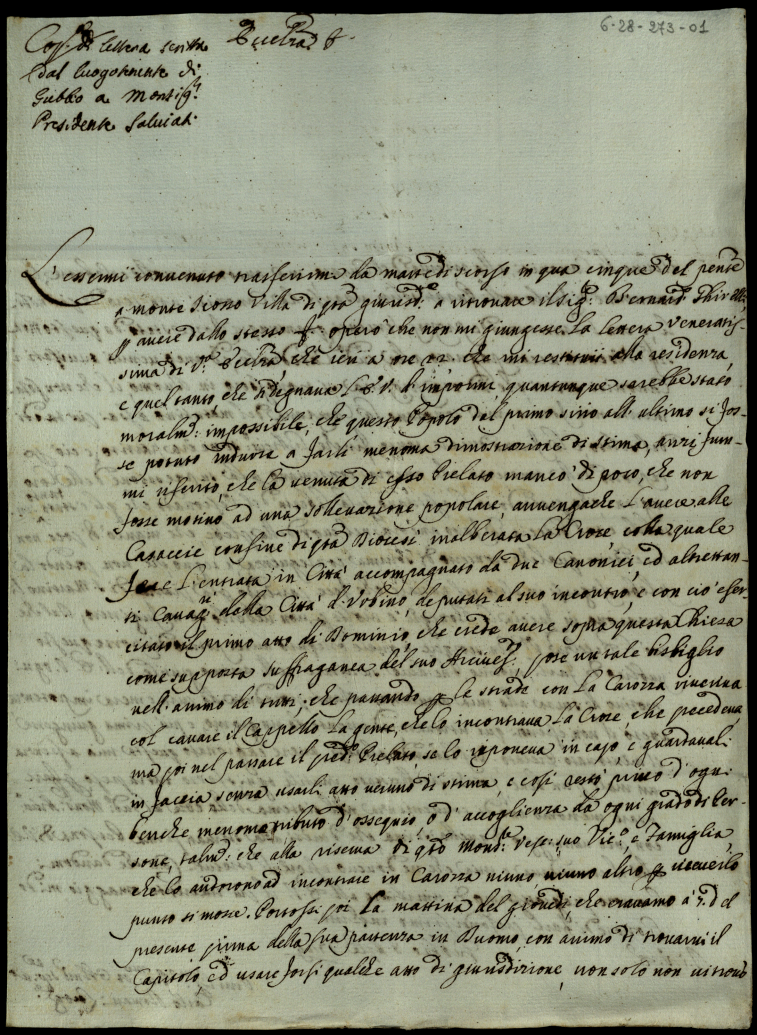 6-28-273-01
Copia di lettera scritta
dal luogotenente di
Gubbio a Monsig.r
Presidente Salviati
Eccell.za
L'essermi convenuto trasferirmi da martedì scorso in qua cinque del pen.te
a monte d'Sosso Villa di q.ta giurisd.e a ritrovare il Sig.r Bernard.o
p avere dallo stesso operò che non mi giungesse la lettera veneratis-
sima di V.ra Eccell.za che ieri a ore 22. che mi restituii alla residenza,
e quel tanto, che si degnava L'E.V. d'impormi, quantunque sarebbe stato
moralm.te impossibile, che questo Popolo dal primo sino all'ultimo si fos-
se potuto indurre a farli menoma dimostrazione di stima, anzi fum-
mi riferito, che la venuta di esso Prelato mancò di poco, che non
fosse motivo ad una sollevazione popolare, avvengache l'avere alle
Casaccie confine di q.ta Diocesi inalberata la Croce, colla quale
fece l'entrata in Città accompagnato da due Canonici, ed altrettan-
ti Cavag.ri della Città d'Urbino, deputati al suo incontro, e con ciò eser-
citato il primo atto di Dominio, che crede avere sopra questa Chiesa
come supposta suffraganea del suo Arcives.to, pose un tale bisbiglio
nell'animo di tutti, che passando p le strade con la Carozza riveriva
col cavare il Cappello la gente, che lo incontrava, la Croce, che precedeva,
ma poi nel passare il pred.o Prelato, se lo imponeva in capo, e guardavali
in faccia senza usarli atto veruno di stima, e così restò privo d'ogni
benche menomo tributo d'ossequio, o d'accoglienza da ogni grado di Per-
sone, talm.te che alla riserva di q.to Mons.r Vesc.o suo Vic.o, e Famiglia,
che lo andorono ad incontrare in Carozza niuno niuno altro p riceverlo
punto si mosse. Portossi poi la mattina del giovedì, che eravamo a 7. del
presente prima della sua partenza in Duomo, con animo di trovarvi il
Capitolo, ed usare forsi qualche atto di giurisdizione, non solo non vi trovò